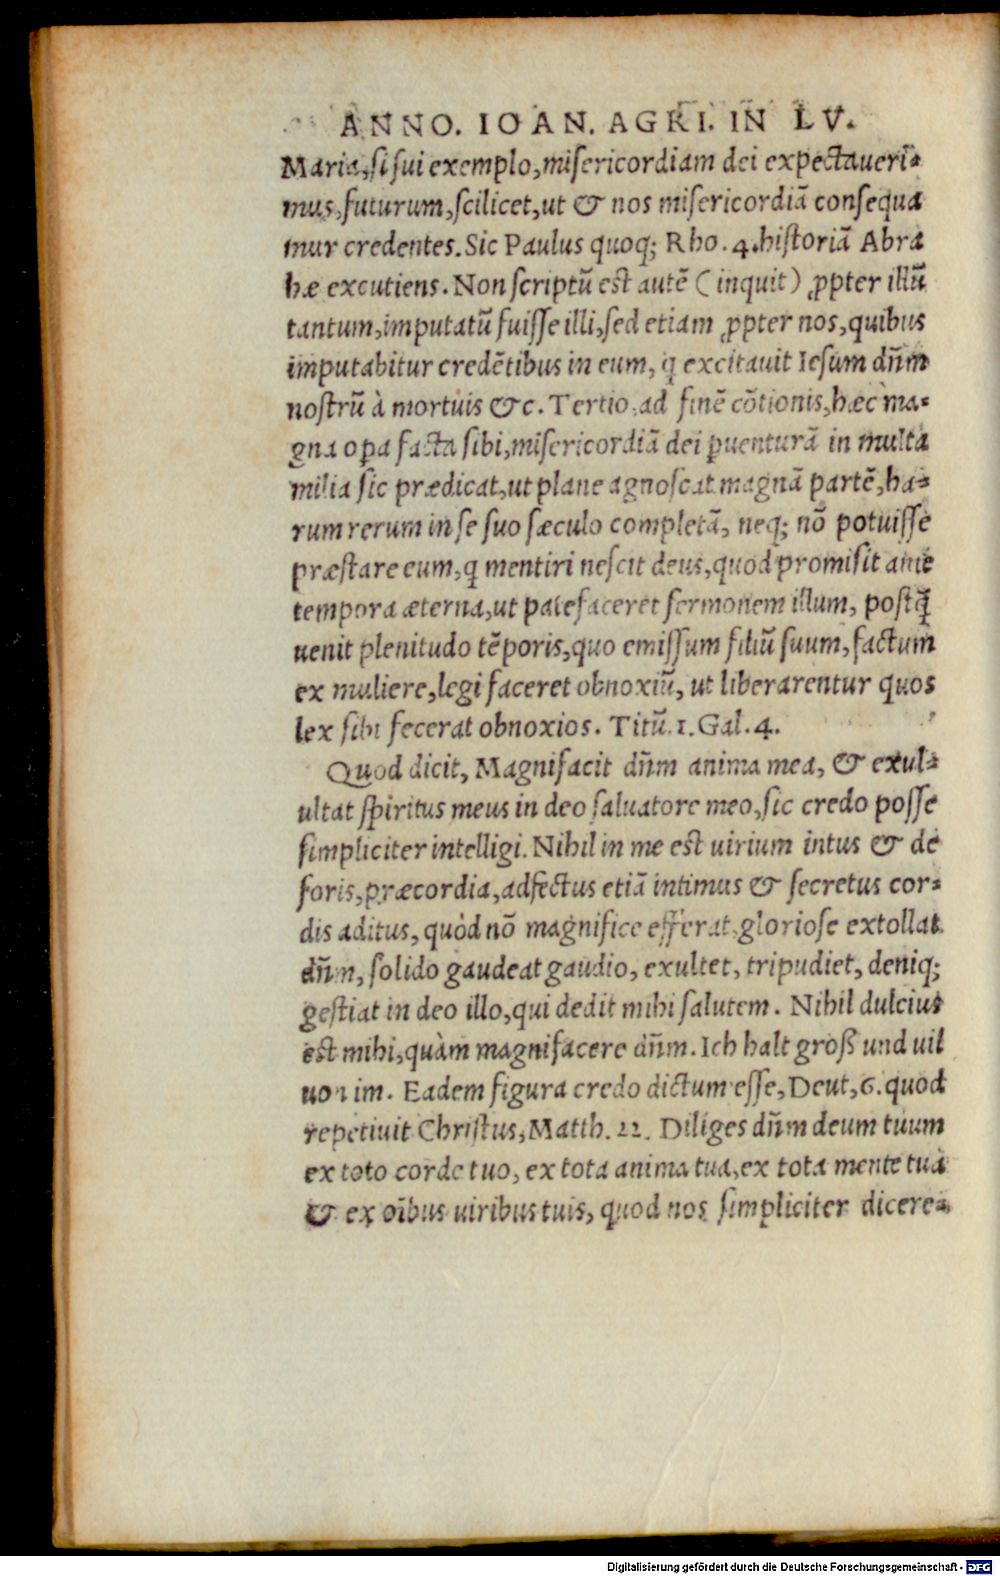 ANNO. IOAN. AGRI. IN LV.
Maria, si sui exemplo, misericordiam dei expectaueri⸗
mus, futurum, scilicet, ut & nos misericordiā consequa
mur credentes. Sic Paulus quoq; Rho. 4. historiā Abra
hæ excutiens. Non scriptū est autē (inquit) ꝓpter illū
tantum, imputatū fuisse illi, sed etiam ꝓpter nos, quibus
imputabitur credētibus in eum, q̃ excitauit Iesum dñm
nostrū à mortuis &c. Tertio, ad finē cōtionis, hæc ma⸗
gna oꝑa facta sibi, misericordiā dei ꝑuenturā in multa
milia sic prædicat, ut plane agnoscat magnā partē, ha⸗
rum rerum in se suo sæculo completā, neq; nō potuisse
præstare eum, q̃ mentiri nescit deus, quod promisit ante
tempora æterna, ut patefaceret sermonem illum, postq̃
uenit plenitudo tēporis, quo emissum filiū suum, factum
ex muliere, legi faceret obnoxiū, ut liberarentur quos
lex sibi fecerat obnoxios. Titū. 1. Gal. 4.
Quod dicit, Magnifacit dñm anima mea, & exul⸗
ultat spiritus meus in deo saluatore meo, sic credo posse
simpliciter intelligi. Nihil in me est uirium intus & de
foris, præcordia, adfectus etiā intimus & secretus cor⸗
dis aditus, quòd nō magnifice efferat, gloriose extollat
dñm, solido gaudeat gaudio, exultet, tripudiet, deniq;
gestiat in deo illo, qui dedit mihi salutem. Nihil dulcius
est mihi, quàm magnifacere dñm. Ich halt groß und uil
uon im. Eadem figura credo dictum esse, Deut, 6. quod
repetiuit Christus, Matth. 22. Diliges dñm deum tuum
ex toto corde tuo, ex tota anima tua, ex tota mente tua
& ex oībus uiribus tuis, quod nos simpliciter dicere⸗
Digitalisierung gefördert durch die Deutsche Forschungsgemeinschaft - DFG